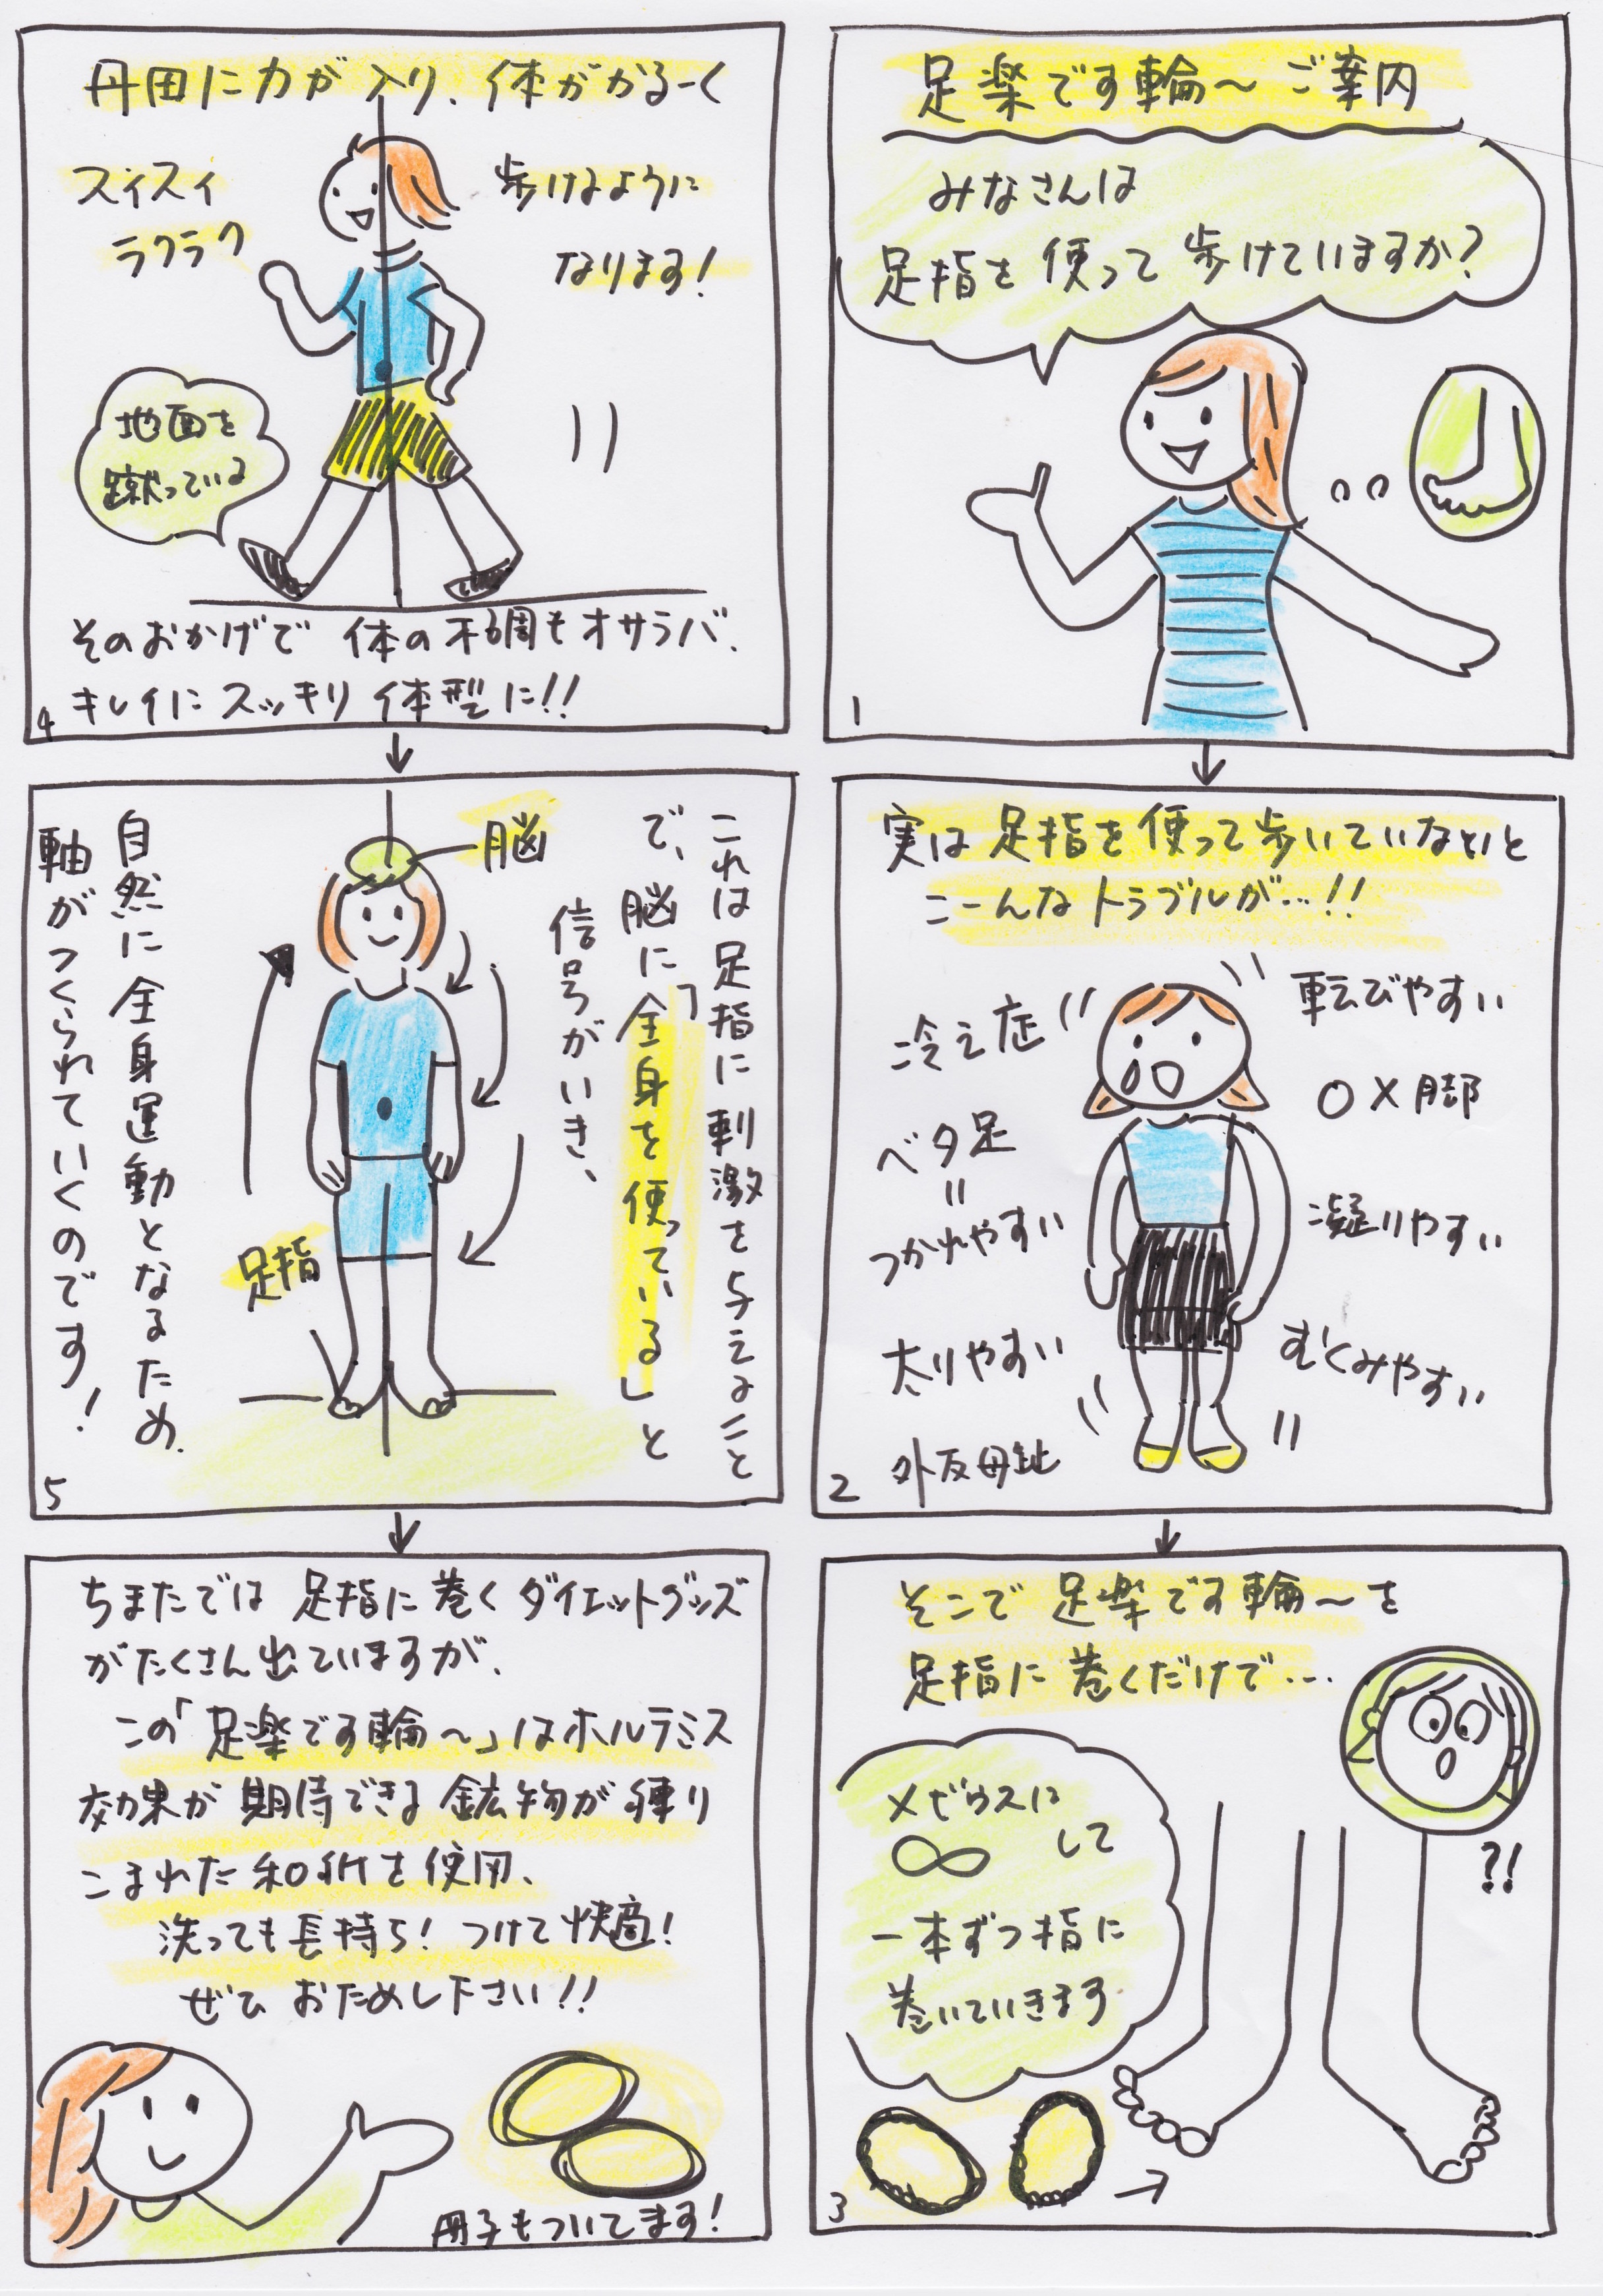 足楽です輪～ご案内
みなさんは
足指を使って歩けていますか?
1
実は足指を使って歩いていないと
こーんなトラブルが…!!
冷え症
転びやすい
O×脚
ベタ足
=
つかれやすい
凝りやすい
太りやすい
むくみやすい
外反母趾
2
そこで足楽です輪～を
足指に巻くだけで…
?!
メビウスに
∞して
一本ずつ指に
巻いていきます
3
丹田に力が入り、体がかるーく
スイスイ
ラクラク
歩けるように
なります!
地面を
蹴っている
そのおかげで体の不調もオサラバ、
キレイにスッキリ体型に!!
4
これは足指に刺激を与えること
で、脳に「全身を使っている」と
信号がいき、
脳
足指
自然に全身運動となるため、
軸がつくられていくのです!
5
ちまたでは足指に巻くダイエットグッズ
がたくさん出ていますが、
この「足楽です輪～」はホルミシス
効果が期待できる鉱物が練り
こまれた和紙を使用、
洗っても長持ち!つけて快適!
ぜひおためし下さい!!
冊子もついてます!